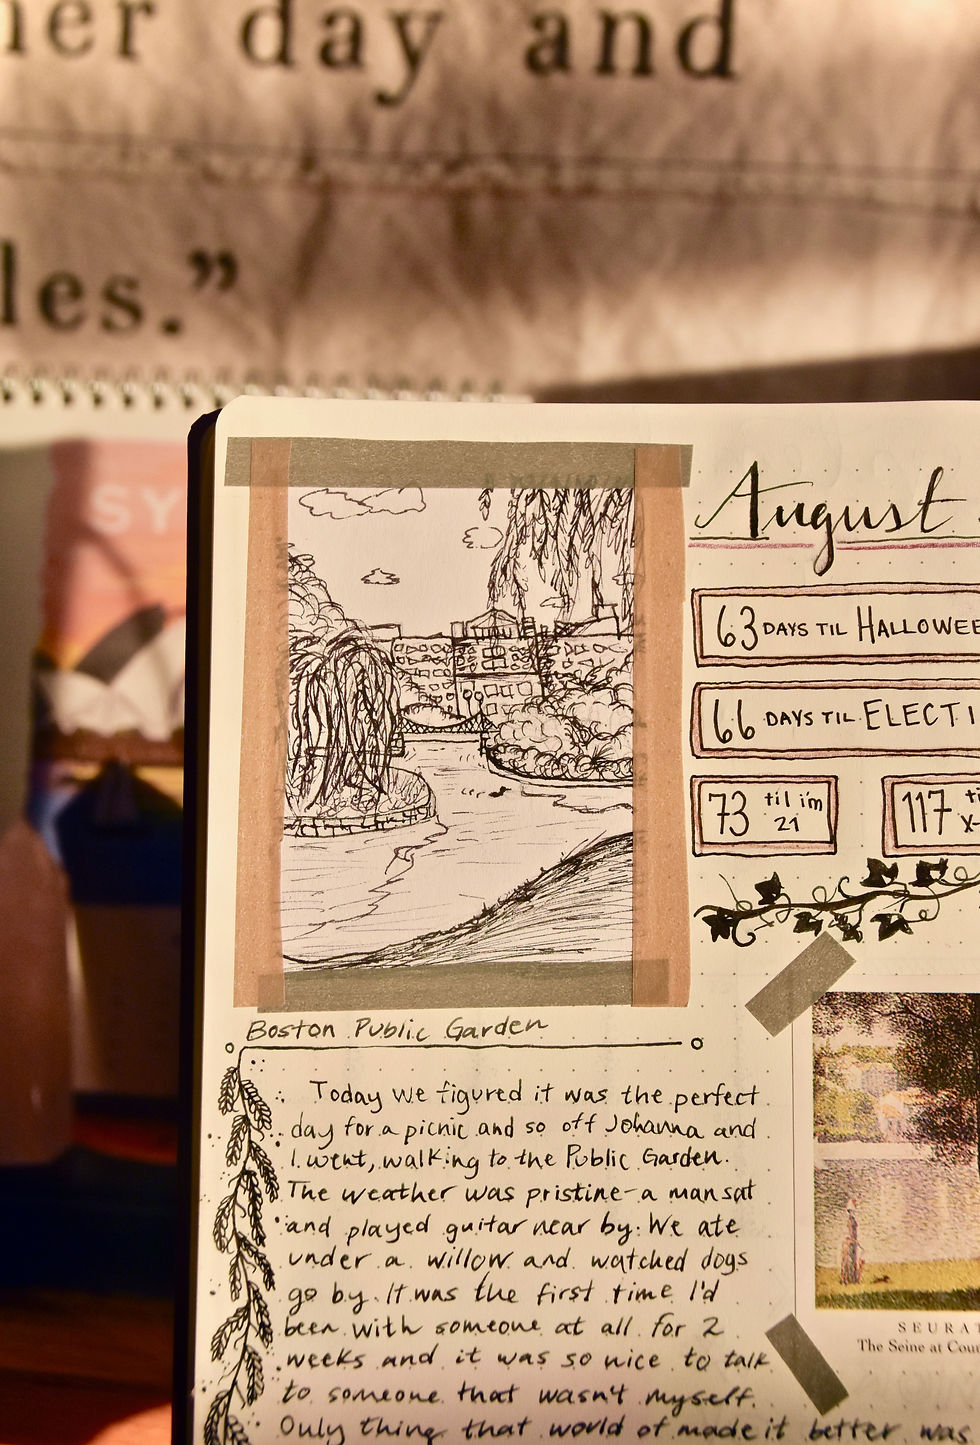 day and
les.”
SY
August
63 DAYS TIL HALLOWEE
66 DAYS TIL ELECTI
73 til i'm 21
117 ti
X-
Boston Public Garden
Today we figured it was the perfect
day for a picnic and so off Johanna and
I went, walking to the Public Garden.
The weather was pristine - a man sat
and played guitar near by. We ate
under a willow and watched dogs
go by. It was the first time I'd
been with someone at all for 2
weeks and it was so nice to talk
to someone that wasn't myself.
Only thing that would of made it better was
SEURAT
The Seine at Cour